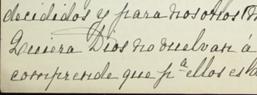 decididos y para nosotros
Quiera Dios no vuelvan á
comprende que pª ellos esta